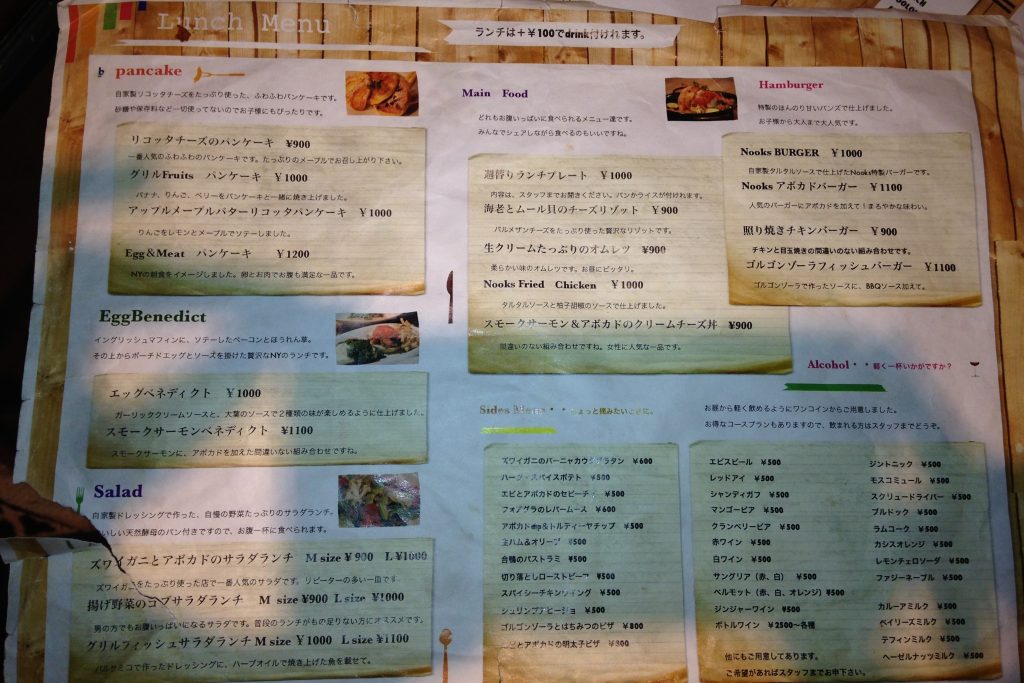 Lunch Menu
ランチは＋￥100でdrink付けれます。
pancake
自家製リコッタチーズをたっぷり使った、ふわふわパンケーキです。
砂糖や保存料など一切使ってないのでお子様にもぴったりです。
リコッタチーズのパンケーキ ￥900
一番人気のふわふわのパンケーキです。たっぷりのメープルでお召し上がり下さい。
グリルFruits パンケーキ ￥1000
バナナ、りんご、ベリーをパンケーキと一緒に焼き上げました。
アップルメープルバターリコッタパンケーキ ￥1000
りんごをレモンとメープルでソテーしました。
Egg&Meat パンケーキ ￥1200
NYの朝食をイメージしました。卵とお肉でお腹も満足な一品です。
EggBenedict
イングリッシュマフィンに、ソテーしたベーコンとほうれん草。
その上からポーチドエッグとソースを掛けた贅沢なNYのランチです。
エッグベネディクト ￥1000
ガーリッククリームソースと、大葉のソースで２種類の味が楽しめるように仕上げました。
スモークサーモンベネディクト ￥1100
スモークサーモンに、アボカドを加えた間違いない組み合わせですね。
Salad
自家製ドレッシングで作った、自慢の野菜たっぷりのサラダランチ。
いしい天然酵母のパン付きですので、お腹一杯に食べられます。
ズワイガニとアボカドのサラダランチ M size￥900 L ￥1000
ズワイガニをたっぷり使った店で一番人気のサラダです。リピーターの多い一皿です
揚げ野菜のコブサラダランチ M size ￥900 L size ￥1000
男の方でもお腹いっぱいになるサラダです。普段のランチがもの足りない方にオススメです。
グリルフィッシュサラダランチ M size ￥1000 L size ￥1100
バルサミコで作ったドレッシングに、ハーブオイルで焼き上げた魚を載せて。
Main Food
どれもお腹いっぱいに食べられるメニュー達です。
みんなでシェアしながら食べるのもいいですね。
週替りランチプレート ￥1000
内容は、スタッフまでお聞きください。パンかライスが付けれます。
海老とムール貝のチーズリゾット ￥900
パルメザンチーズをたっぷり使った贅沢なリゾットです。
生クリームたっぷりのオムレツ ￥900
柔らかい味のオムレツです。お昼にピッタリ。
Nooks Fried Chicken ￥1000
タルタルソースと柚子胡椒のソースで仕上げました。
スモークサーモン＆アボカドのクリームチーズ丼 ￥900
間違いのない組み合わせですね。女性に人気な一品です。
Hamburger
特製のほんのり甘いバンズで仕上げました。
お子様から大人まで大人気です。
Nooks BURGER ￥1000
自家製タルタルソースで仕上げたNooks特製バーガーです。
Nooks アボカドバーガー ￥1100
人気のバーガーにアボカドを加えて！まろやかな味わい。
照り焼きチキンバーガー ￥900
チキンと目玉焼きの間違いのない組み合わせです。
ゴルゴンゾーラフィッシュバーガー ￥1100
ゴルゴンゾーラで作ったソースに、BBQソース加えて。
Sides Menu・・ちょっと摘みたいときに。
ズワイガニのバーニャカウダグラタン ￥600
ハーブ・スパイスポテト ￥500
エビとアボカドのセビーチェ ￥500
フォアグラのレバームース ￥600
アボカドdip＆トルティーヤチップ ￥500
生ハム＆オリーブ ￥500
合鴨のパストラミ ￥500
切り落としローストビーフ ￥500
スパイシーチキンウイング ￥500
シュリンプアヒージョ ￥500
ゴルゴンゾーラとはちみつのピザ ￥800
とアボカドの明太子ピザ ￥800
Alcohol・・軽く一杯いかがですか？
お昼から軽く飲めるようにワンコインからご用意しました。
お得なコースプランもありますので、飲まれる方はスタッフまでどうぞ。
エビスビール ￥500
レッドアイ ￥500
シャンディガフ ￥500
マンゴービア ￥500
クランベリービア ￥500
赤ワイン ￥500
白ワイン ￥500
サングリア（赤、白） ￥500
ベルモット（赤、白、オレンジ）￥500
ジンジャーワイン ￥500
ボトルワイン ￥2500〜各種
他にもご用意してあります。
ご希望があればスタッフまでお申下さい。
ジントニック ￥500
モスコミュール ￥500
スクリュードライバー ￥500
ブルドック ￥500
ラムコーク ￥500
カシスオレンジ ￥500
レモンチェロソーダ ￥500
ファジーネーブル ￥500
カルーアミルク ￥500
ベイリーズミルク ￥500
テフィンミルク ￥500
ヘーゼルナッツミルク ￥500